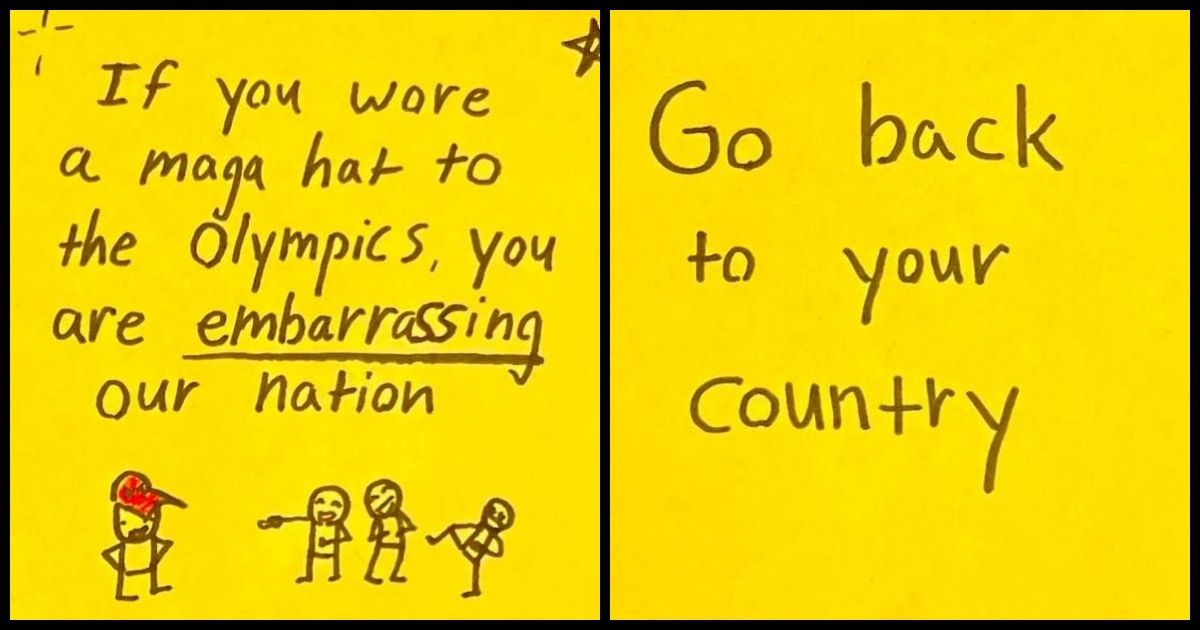 If you wore
a maga hat to
the Olympics, you
are embarrassing
our nation
Go back
to your
country